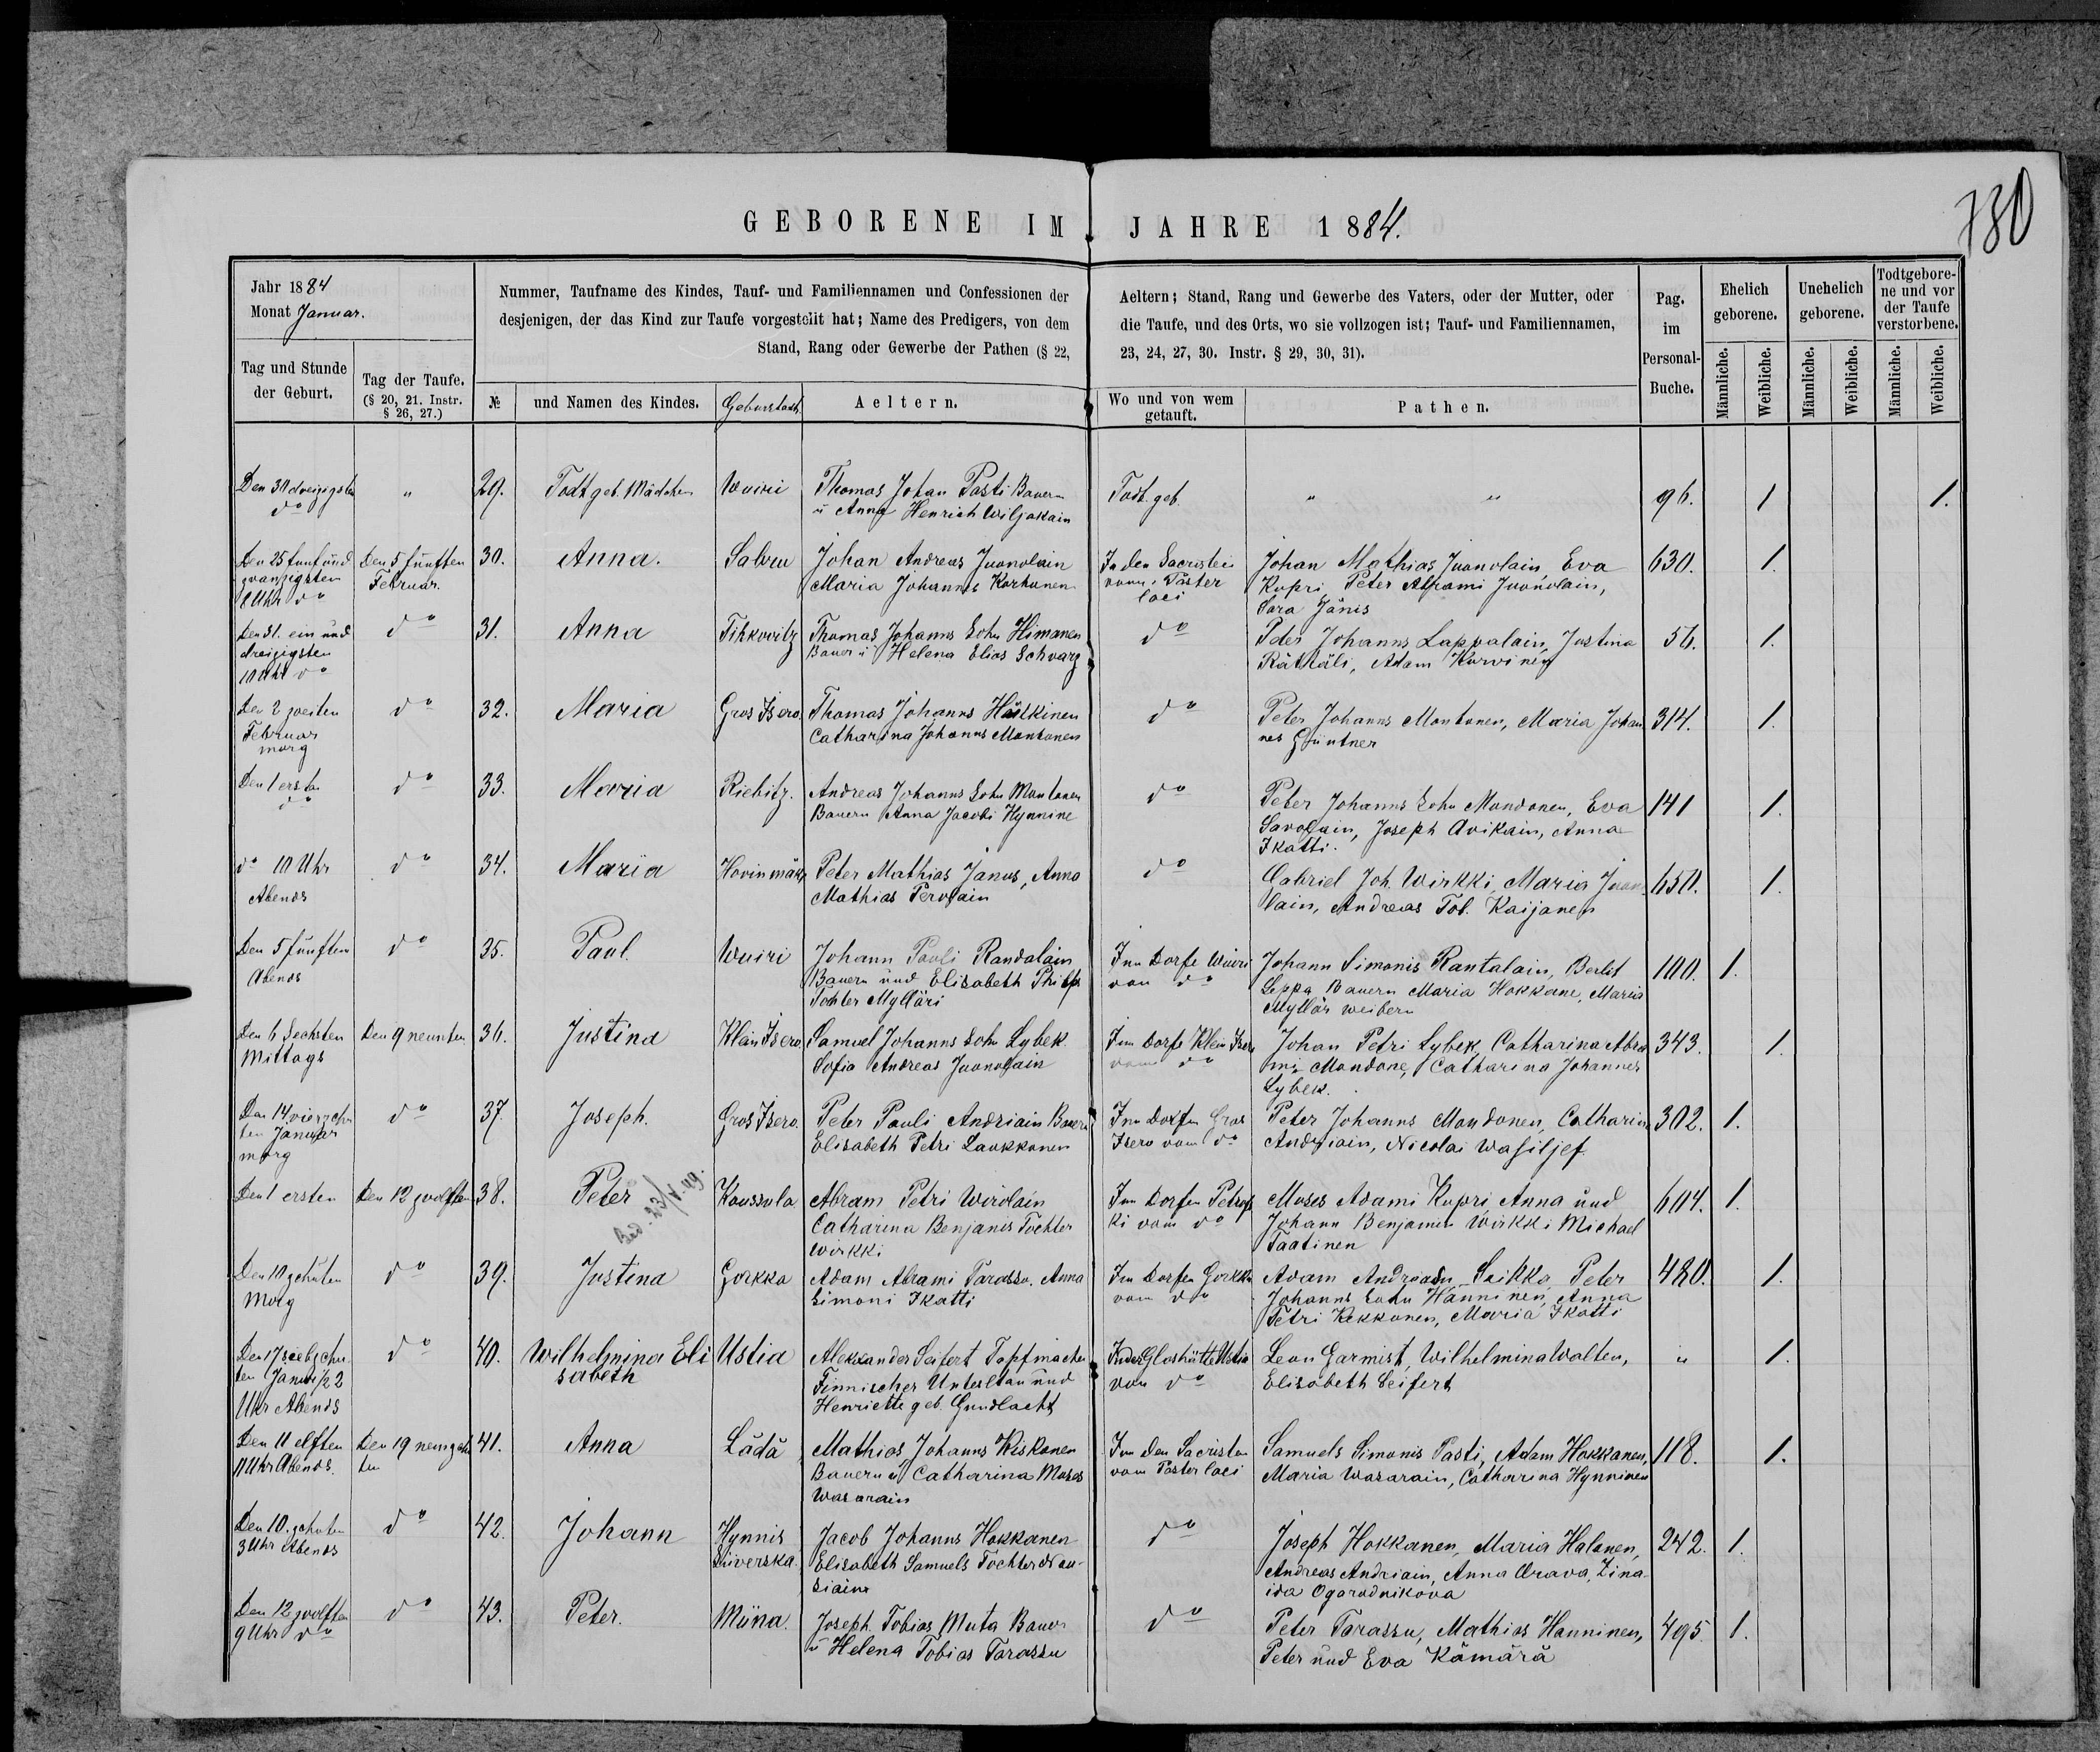 780
GEBORENE IM JAHRE 1884.
Jahr 1884
Monat Januar.
Nummer, Taufname des Kindes, Tauf- und Familiennamen und Confessionen der
desjenigen, der das Kind zur Taufe vorgestellt hat; Name des Predigers, von dem
Stand, Rang oder Gewerbe der Pathen (§ 22,
Aeltern; Stand, Rang und Gewerbe des Vaters, oder der Mutter, oder
die Taufe, und des Orts, wo sie vollzogen ist; Tauf- und Familiennamen,
23, 24, 27, 30. Instr. § 29, 30, 31).
Pag.
im
Personal-
Buche.
Ehelich
geborene.
Unehelich
geborene.
Todtgebore-
ne und vor
der Taufe
verstorbene.
Tag und Stunde
der Geburt.
Tag der Taufe.
(§ 20, 21. Instr.
§ 26, 27.)
№
und Namen des Kindes.
Aeltern.
Wo und von wem
getauft.
Pathen.
Männliche.
Weibliche.
Männliche.
Weibliche.
Männliche.
Weibliche.
Den 30 dreizigsten
do
"
29.
Todt geb. Mädchen
Wuiri
Thomas Johan Pasti Bauern
u Anna Henrich Wiljakain
Todt. geb.
" "
96.
1
1.
Den 25 funf und
zwanzigsten
8 Uhr do
Den 5 funften
Februar.
30.
Anna.
Salvu
Johan Andreas Juonolain
Maria Johannes Korhonen
In der Sacristei
vom Paster
loci
Johan Mathias Juonolain Eva
Kupri, Peter Abrami Juonolain,
Sara Jänis
630.
1.
Den 31. ein und
dreizigsten
10 Uhr do
do
31.
Anna
Tihkovitz
Thomas Johanns Sohn Himanen
Bauer u Helena Elias Schvarg
do
Peter Johanns Lappalain, Justina
Räthäli, Adam Kurvinen
56.
1.
Den 2 zweiten
Februar
morg
do
32.
Maria
Gros Isero
Thomas Johanns Hälkinen
Catharina Johanns Montonen
do
Peter Johanns Montonen, Maria Johan
nes Güntner
314.
1.
Den 1 ersten
do
do
33.
Maria
Riebitz.
Andreas Johanns Sohn Montonen
Bauern Anna Jacobi Hynnine
do
Peter Johanns Sohn Mondonen, Eva
Savolain, Joseph Avikain, Anna
Ikatti.
141
1.
do 10 Uhr
Abends
do
34.
Maria
Hovinmäki
Peter Mathias Janus, Anna
Mathias Pervolain
do
Gabriel Joh. Wirkki, Maria Juon
lain, Andreas Tob. Kaijanen
650.
1.
Den 5 funften
Abends
do
35.
Paul.
Wuiri
Johann Pauli Randalain
Bauern und Elisabeth Philip
Tohter Mylläri
Im Dorfe Wuiri
von do
Johann Simonis Rantalain,
Leppa Bauern Maria Hokkane, Maria
Myllär weibern
100.
1.
Den 6 Sechsten
Mittags
Den 9 neunten
36.
Justina
Klein Isero
Samuel Johanns Sohn Lybek
Sofia Andreas Juonolain
Im Dorfe Klein Isero
vom do
Johan Petri Lybek, Catharina Abra
mi Mondone, Catharina Johannes
Lybek.
343.
1.
Den 14. vierzehn
ten Januar
morg
do
37.
Joseph.
Gros Isero.
Peter Pauli Andriain Bauern
Elisabeth Petri Laukkonen
Im Dorfen Gros
Isero vom do
Peter Johanns Mondonen, Catharin
Andriain, Nicolai Wasiljef
302.
1.
Den 1 ersten
Den 12 zwolften
38.
Peter
Koussula
Abram Petri Wirolain
Catharina Benjanis Tochter
Wirkki
Im Dorfen Petrofs
ki vom do
Moses Adami Kupri, Anna und
Johann Benjamin Wirkki Michael
Taatinen
604.
1.
Den 10 zehnten
Morg
do
39.
Justina
Gorkka
Adam Abrami Tarassu. Anna
Simoni Ikatti
Im Dorfen Gorkka
vom do
Adam Andreasu Saikko Peter
Johanns Sohn Hanninen, Anna
Petri Kekkonen, Maria Ikatti
480.
1.
Den 17 siebzehn
ten Januar 1/2 2
Uhr Abends
do
40.
Wilhelmina Eli
sabeth
Ustia
Alexander Seifert Topfmacher
Finnischer Unterthan und
Henriette geb. Gundlacht
In der Glashütte Ustia
von do
Leon Garmist, Wilhelmina Walten,
Elisabeth Seifert
"
1.
Den 11 elften
11 Uhr Abends.
Den 19 neunzehn
ten
41.
Anna
Lädä
Mathias Johanns Kiskonen
Bauern u Catharina Moses
Wasarain
In den Sacristen
vom Paster loci
Samuels Simonis Pasti, Adam Hokkanen,
Maria Wasarain, Catharina Hynninen
118.
1.
Den 10. zehnten
3 Uhr Abends
do
42.
Johann
Hynnis
Siiverska.
Jacob Johanns Hokkanen
Elisabeth Samuels Tochter Nou-
siain
do
Joseph Hokkanen, Maria Halonen,
Andreas Andriain, Anna Orava, Zina
ida Ogorodnikova
242.
1.
Den 12 zwolften
9 Uhr do
do
43.
Peter.
Müna.
Joseph Tobias Muta Bauer
u Helena Tobias Tarassu
do
Peter Tarassu, Mathias Hanninen,
Peter und Eva Kämärä
495.
1.